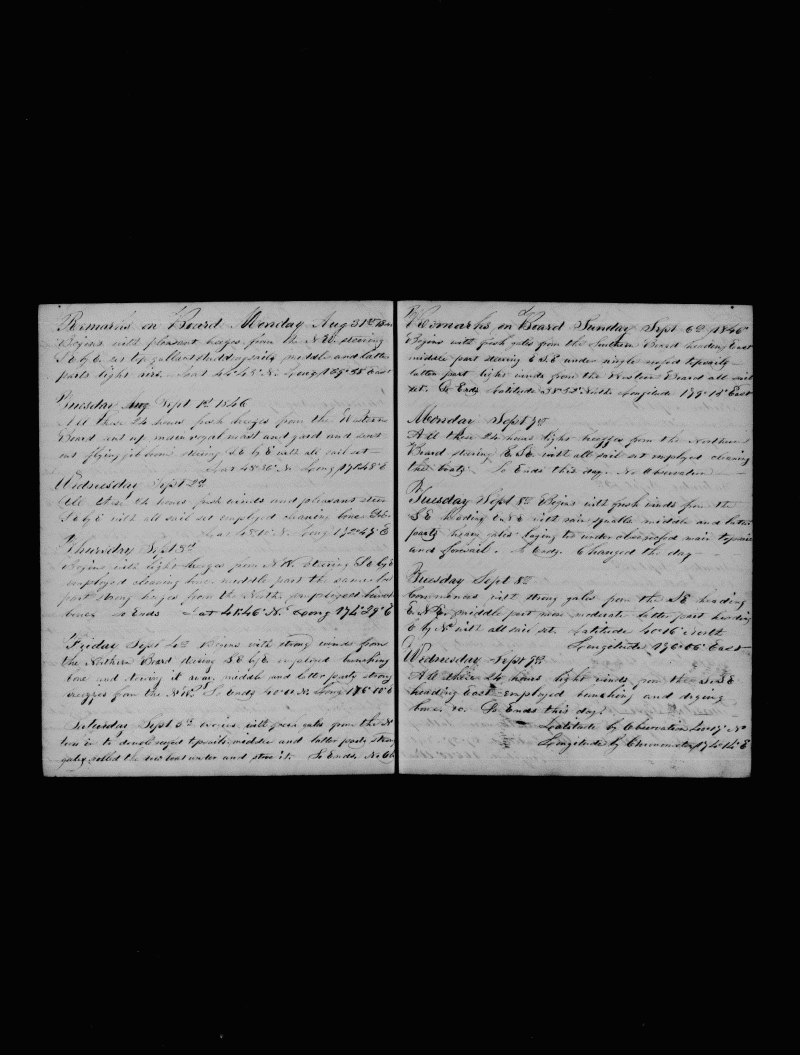 Remarks on Board Monday Aug 31st 1846
Begins with pleasant breezes from the N.W. steering
S E by E set top gallant studding sails middle and latter
parts light airs. Lat 44°43' N. Long 169°38 East
Tuesday Aug Sept 1st 1846
All these 24 hours fresh breezes from the Western
Board sent up main royal mast and yard and sent
out flying jib boom steering S E by E with all sail set
Long 171°48' E
Wednesday Sept 2d
All these 24 hours fresh winds and pleasant steer
S E by E with all sail set employed cleaning bone
Long 172°47' E
Thursday Sept 3d
Begins with light breezes from N.W. steering S E by E
employed cleaning bone middle part the same latter
part strong breezes from the North employed
bone So Ends Lat 41°46' N. Long 174°29' E
Friday Sept 4th Begins with strong winds from
the Northern Board steering S E by E employed bunching
bone and stowing it away. middle and latter parts strong
breezes from the N.W. So Ends 40°11 N. Long 176°10' E
Saturday Sept 5th Begins with fresh gales from the N
hove to to double reefed topsails middle and latter parts strong
gales rolled the bow boat under and stove it. So Ends. No Ob
Remarks on Board Sunday Sept 6th 1846
Begins with fresh gales from the Southern Board heading East
middle part steering E S E under single reefed topsails
latter part light winds from the Western Board all sail
set. So Ends Latitude 38°52' North Longitude 179°15' East
Monday Sept 7th
All these 24 hours light breezes from the Northern
Board steering E.S.E. with all sail set employed cleaning
the boats. So Ends this day. No Observation
Tuesday Sept 8th Begins with fresh winds from the
S E heading E N E with rain squalls middle and latter
parts heavy gales laying to under close reefed main topsail
and foresail. So Ends. Changed the day
Tuesday Sept 8th
Commences with strong gales from the S E heading
E.N.E. middle part more moderate latter part heading
E by N. with all sail set. Latitude 40°16' North
Longitude 176°06' East
Wednesday Sept 9th
All these 24 hours light winds from the S.S.E
heading East employed bunching and drying
bone &c. So Ends this day.
Latitude by Observation N°
Longitude by Chronometer 174°14' E